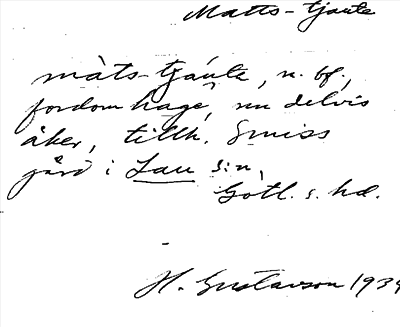 Matts-tjaute
màts-tjáute, n. bf.,
fordom hage, nu delvis
åker, tillh. Smiss
gård i Lau s:n,
Gotl. s. hd.
H. Gustavson 1934